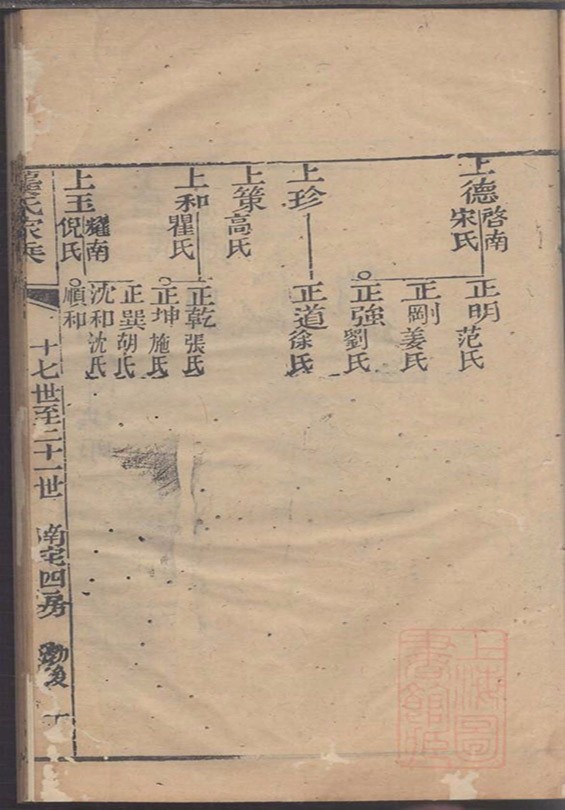 上德 啓南 宋氏
正明 范氏
正剛 姜氏
正強 劉氏
上珍
正道 徐氏
上策 高氏
上和 瞿氏
正乾 張氏
正坤 施氏
上玉 耀南 倪氏
正巽 胡氏
沈和 沈氏
順和
氏家乘
十七世至二十一世
南宅四房
勤後
上海圖書館藏